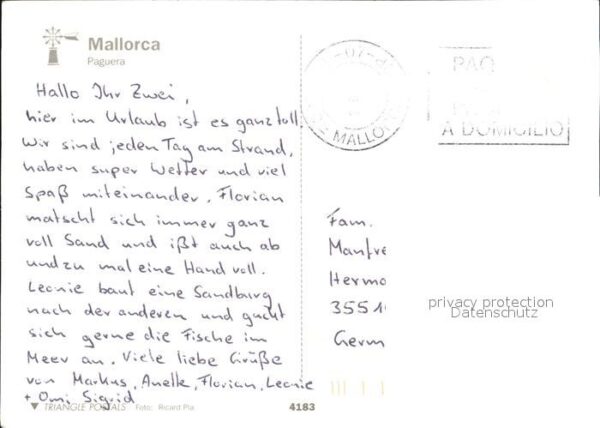 Mallorca
Paguera
Hallo Ihr Zwei,
hier im Urlaub ist es ganz toll.
Wir sind jeden Tag am Strand,
haben super Wetter und viel
Spaß miteinander. Florian
matscht sich immer ganz
voll Sand und ißt auch ab
und zu mal eine Hand voll.
Leonie baut eine Sandburg
nach der anderen und guckt
sich gerne die Fische im
Meer an. Viele liebe Grüße
von Markus, Anette, Florian, Leonie
+ Omi Sigrid
TRIANGLE POSTALS Foto: Ricard Pla
4183
07
MALLOR
PAQ
A DOMICILIO
Fam.
Manfre
Hermo
3551
Germ
privacy protection
Datenschutz